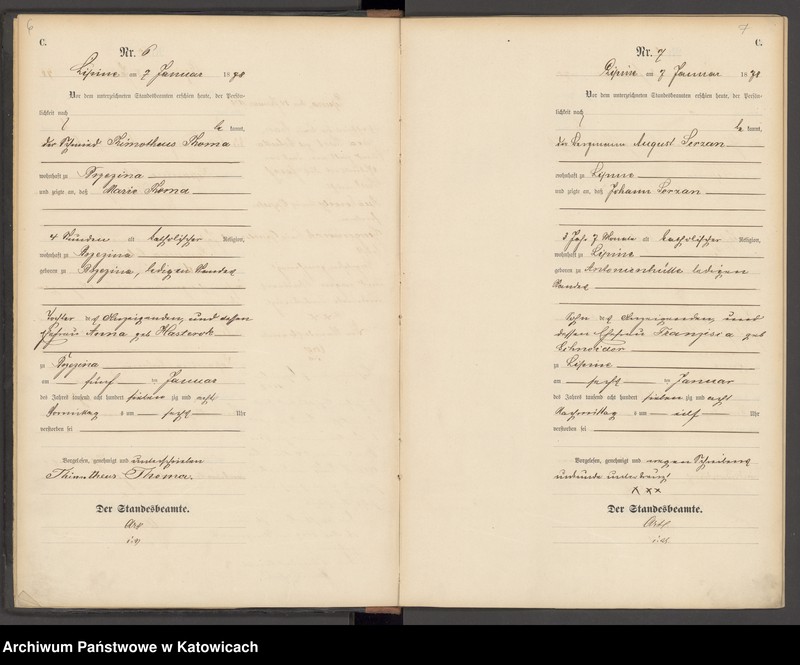 6
C.
Nr. 6
Lipine am 7 Januar 1878
Vor dem unterzeichneten Standesbeamten erschien heute, der Persön-
lichkeit nach
be kannt,
der Schmied Thimotheus Thoma
wohnhaft zu Brzezina
und zeigte an, daß Marie Thoma
4 Stunden alt katholischer Religion,
wohnhaft zu Brzezina
geboren zu Brzezina, ledigen Standes
Tochter des Anzeigenden, und dessen
Ehefrau Anna geb
zu Brzezina
am fünf ten Januar
des Jahres tausend acht hundert sieben zig und acht
Vormittag s um sechs Uhr
verstorben sei
Vorgelesen, genehmigt und unterschrieben
Thimotheus Thoma.
Der Standesbeamte.
7
C.
Nr. 7
Lipine am 7 Januar 1878
Vor dem unterzeichneten Standesbeamten erschien heute, der Persön-
lichkeit nach
be kannt,
der Bergmann August
wohnhaft zu Lipine
und zeigte an, daß Johann
Jahr 7 Monate alt katholischer Religion,
wohnhaft zu Lipine
geboren zu Antonienhütte ledigen
Standes
Sohn des Anzeigenden, und
dessen Ehefrau Franziska geb
Schneider
zu Lipine
am sechs ten Januar
des Jahres tausend acht hundert sieben zig und acht
Nachmittag s um elf Uhr
verstorben sei
Vorgelesen, genehmigt und wegen Schreibens
unkunde unterkreuzt
xxx
Der Standesbeamte.
Archiwum Państwowe w Katowicach